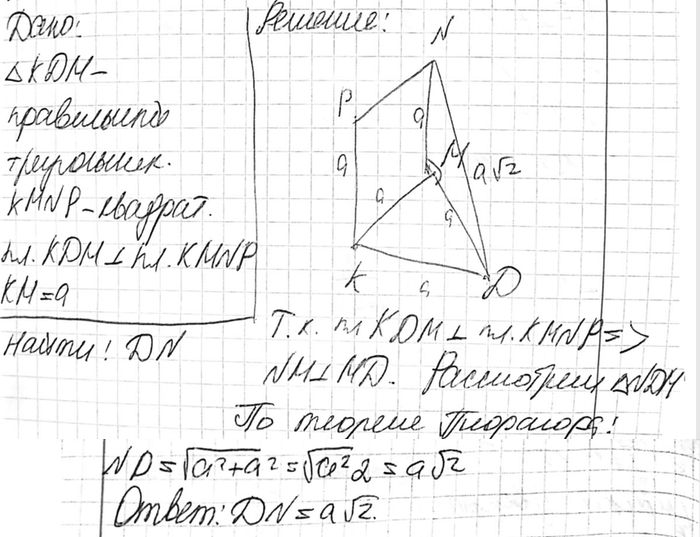 Дано:
△KDM –
правильный
треугольник.
KMNP – квадрат.
пл. KDM ⊥ пл. KMNP
KM = a
Найти: DN
Решение:
N
P
a
a
M
a√2
a
a
K
a
D
Т.к. пл KDM ⊥ пл. KMNP =>
NM ⊥ MD. Рассмотрим △NDM
По теореме Пифагора:
ND = √a²+a² = √a²2 = a√2
Ответ: DN = a√2.